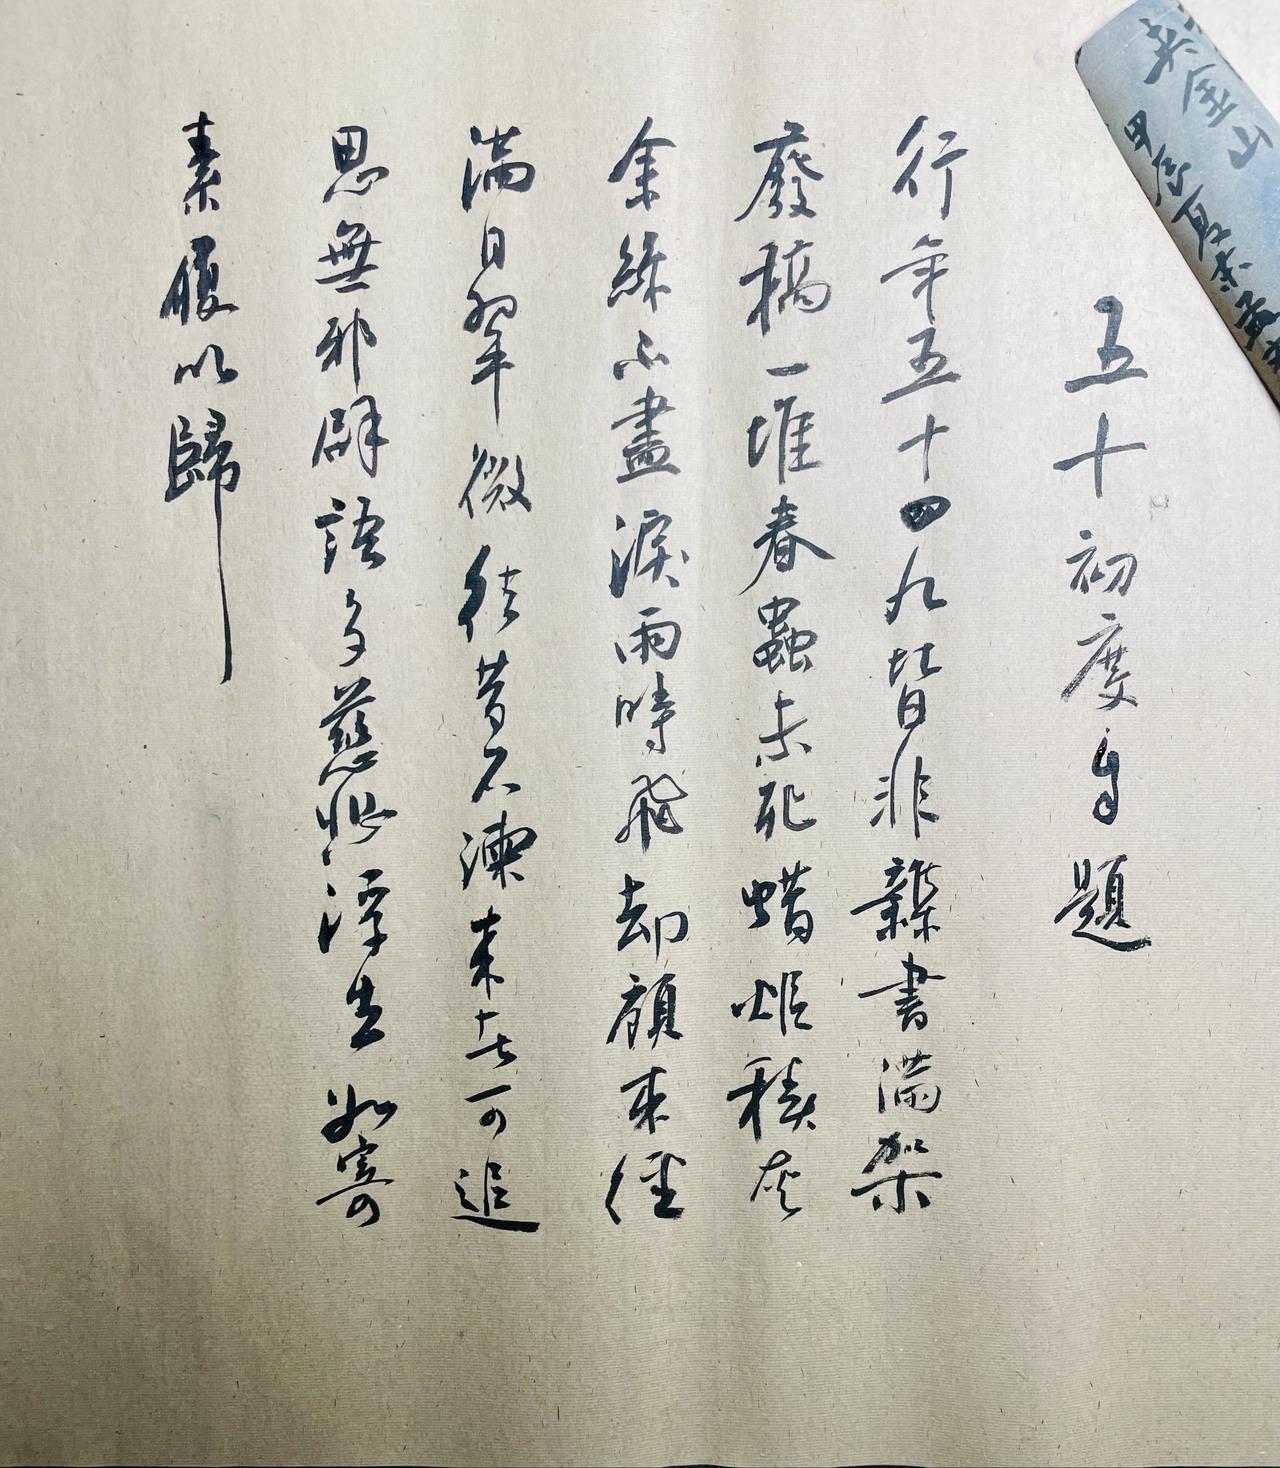 五十初度自題
行年五十四九皆非雜書滿架
廢稿一堆春蟲未死蜡炬積灰
余絲不盡淚雨時飛却顧來徑
滿目翠微往昔不諫來者可追
思無邪辟語多慈悲浮生如寄
素履以歸
金山
甲辰夏